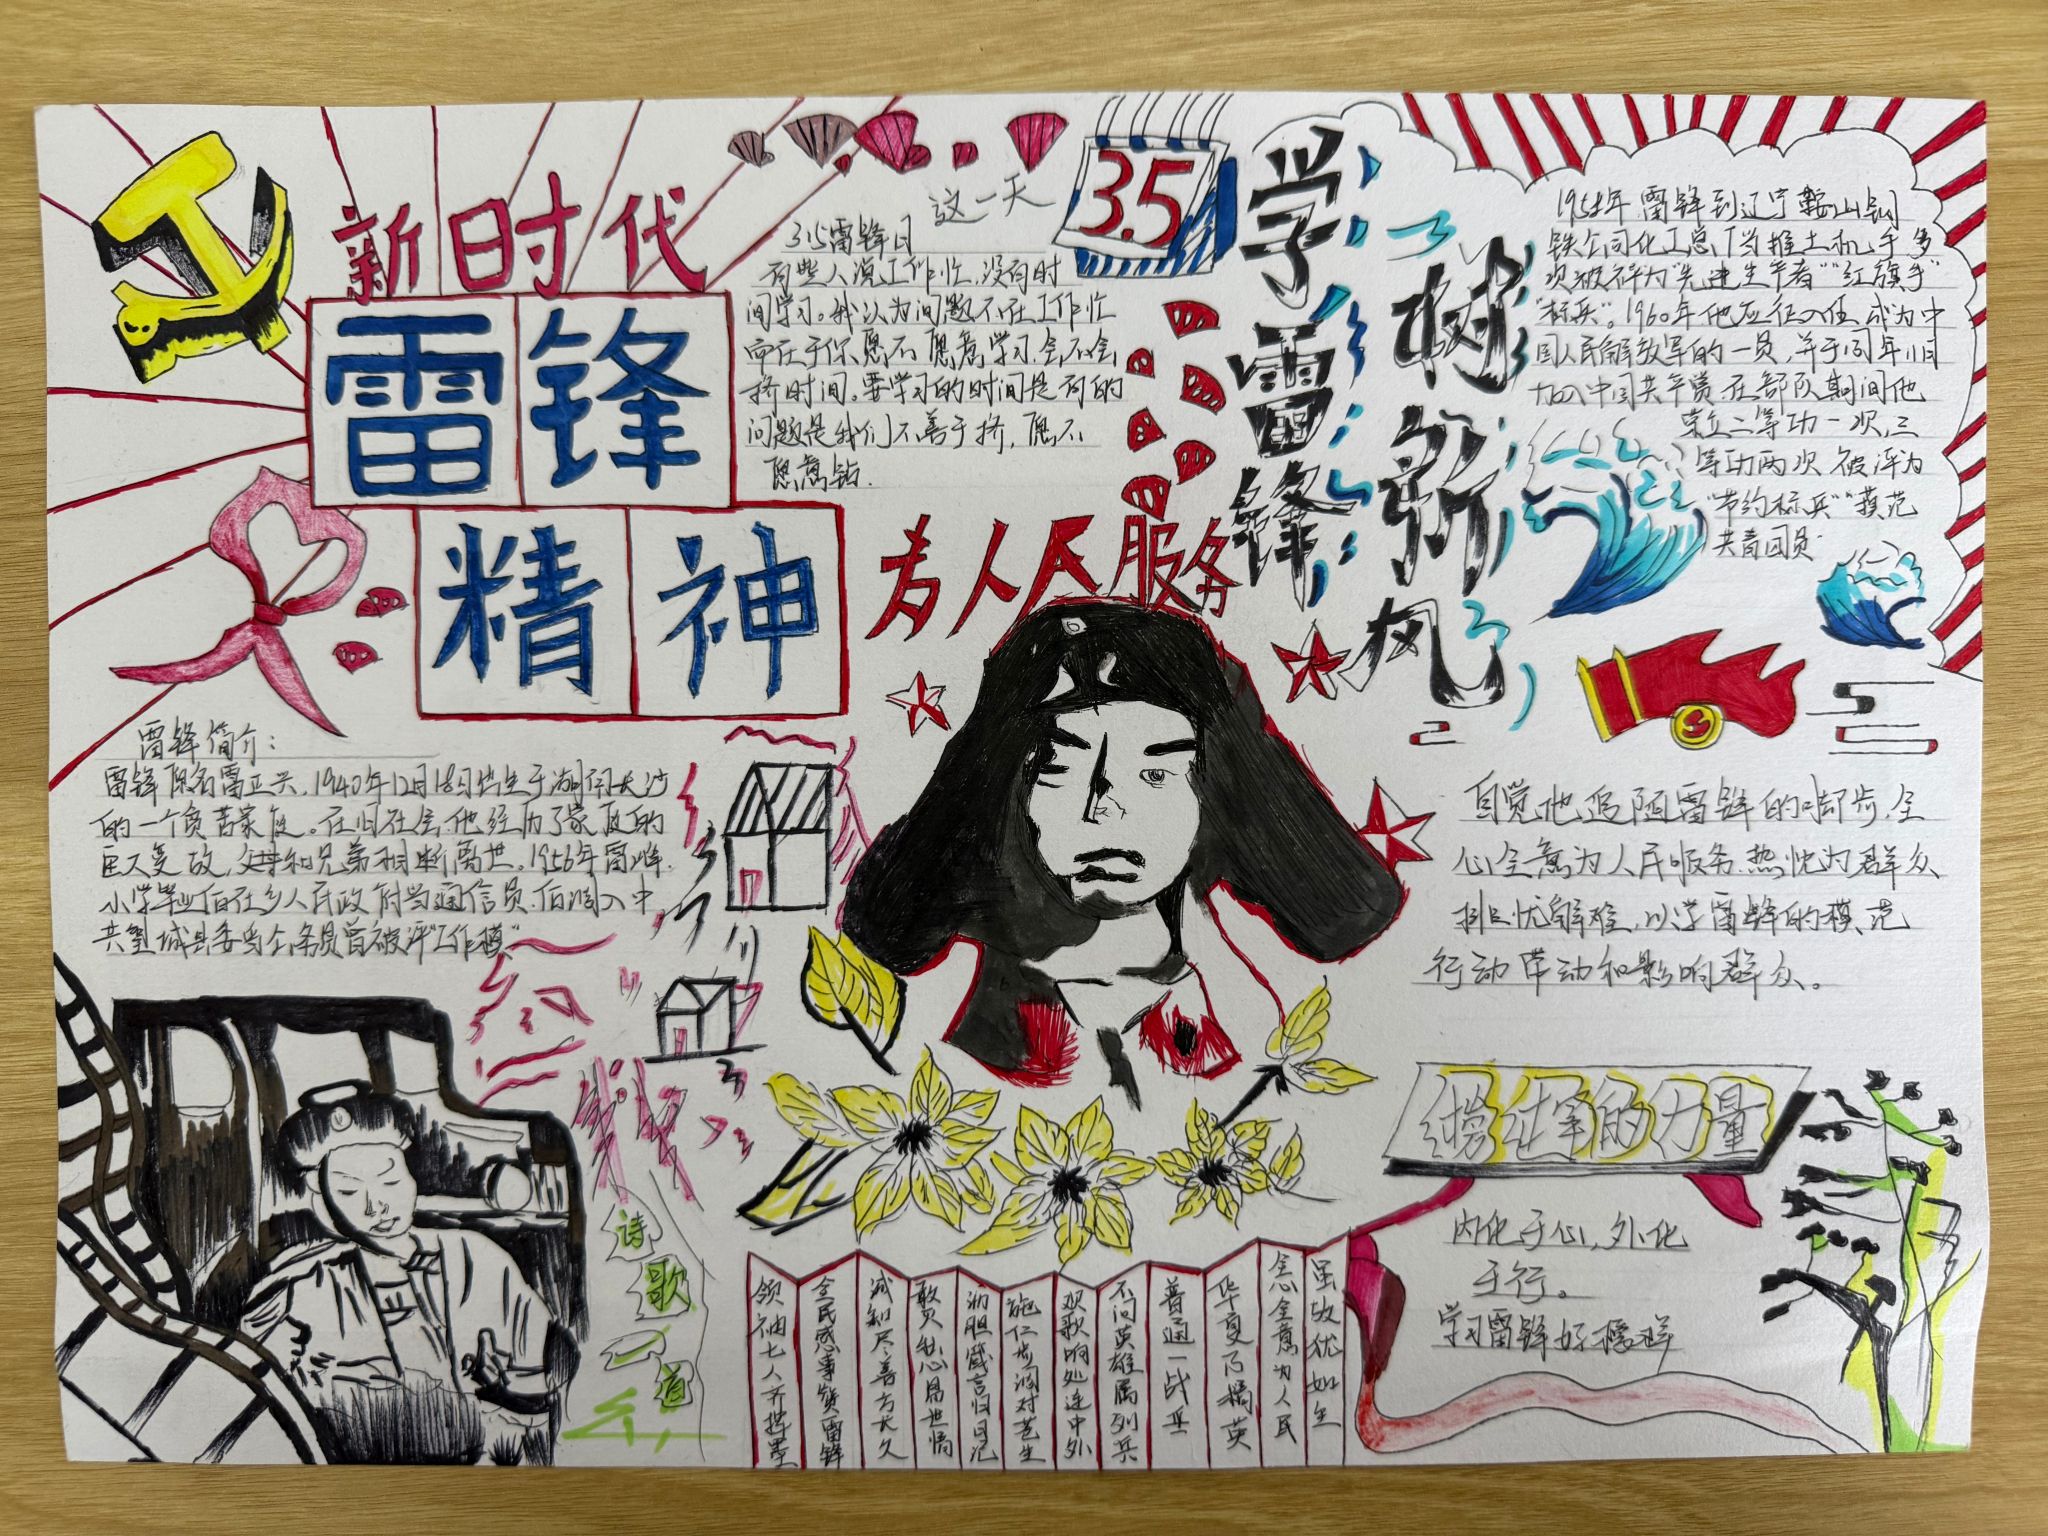 新时代
雷锋
精神
这一天
3.5
3.5雷锋日
有些人说工作忙，没有时
间学习。我认为问题不在工作忙
而在于你愿不愿意学习，会不会
挤时间。要学习的时间是有的
问题是我们不善于挤，愿不
愿意钻.
学雷锋
树新风
1958年雷锋到辽宁鞍山钢
铁公司化工总厂当推土机手多
次被评为"先进生产者""红旗手"
"标兵"。1960年他应征入伍，成为中
国人民解放军的一员，并于同年11月
加入中国共产党在部队期间他
荣立二等功一次，三
等功两次被评为
"节约标兵""模范
共青团员
为人民服务
雷锋简介：
雷锋原名雷正兴，1940年12月18日出生于湖南长沙
的一个贫苦家庭。在旧社会，他经历了家庭的
巨大变故，父母和兄弟相断离世。1956年雷锋
小学毕业后在乡人民政府当通信员，后调入中
共望城县委当公务员曾被评"工作模"
自觉地追随雷锋的脚步，全
心全意为人民服务，热忱为群众
排忧解难，以学雷锋的模范
行动带动和影响群众。
榜样的力量
内化于心，外化
于行。
学习雷锋好榜样
诗歌一道
虽败优如生
全心全意为人民
华夏乃橘英
普通一战兵
不问英雄属列兵
欢歌响处连中外
施仁步润对苍生
沥胆箴言归日记
敢罗私心屠世情
诚知尽善方长久
全民感事赞雷锋
领袖七人齐挥墨